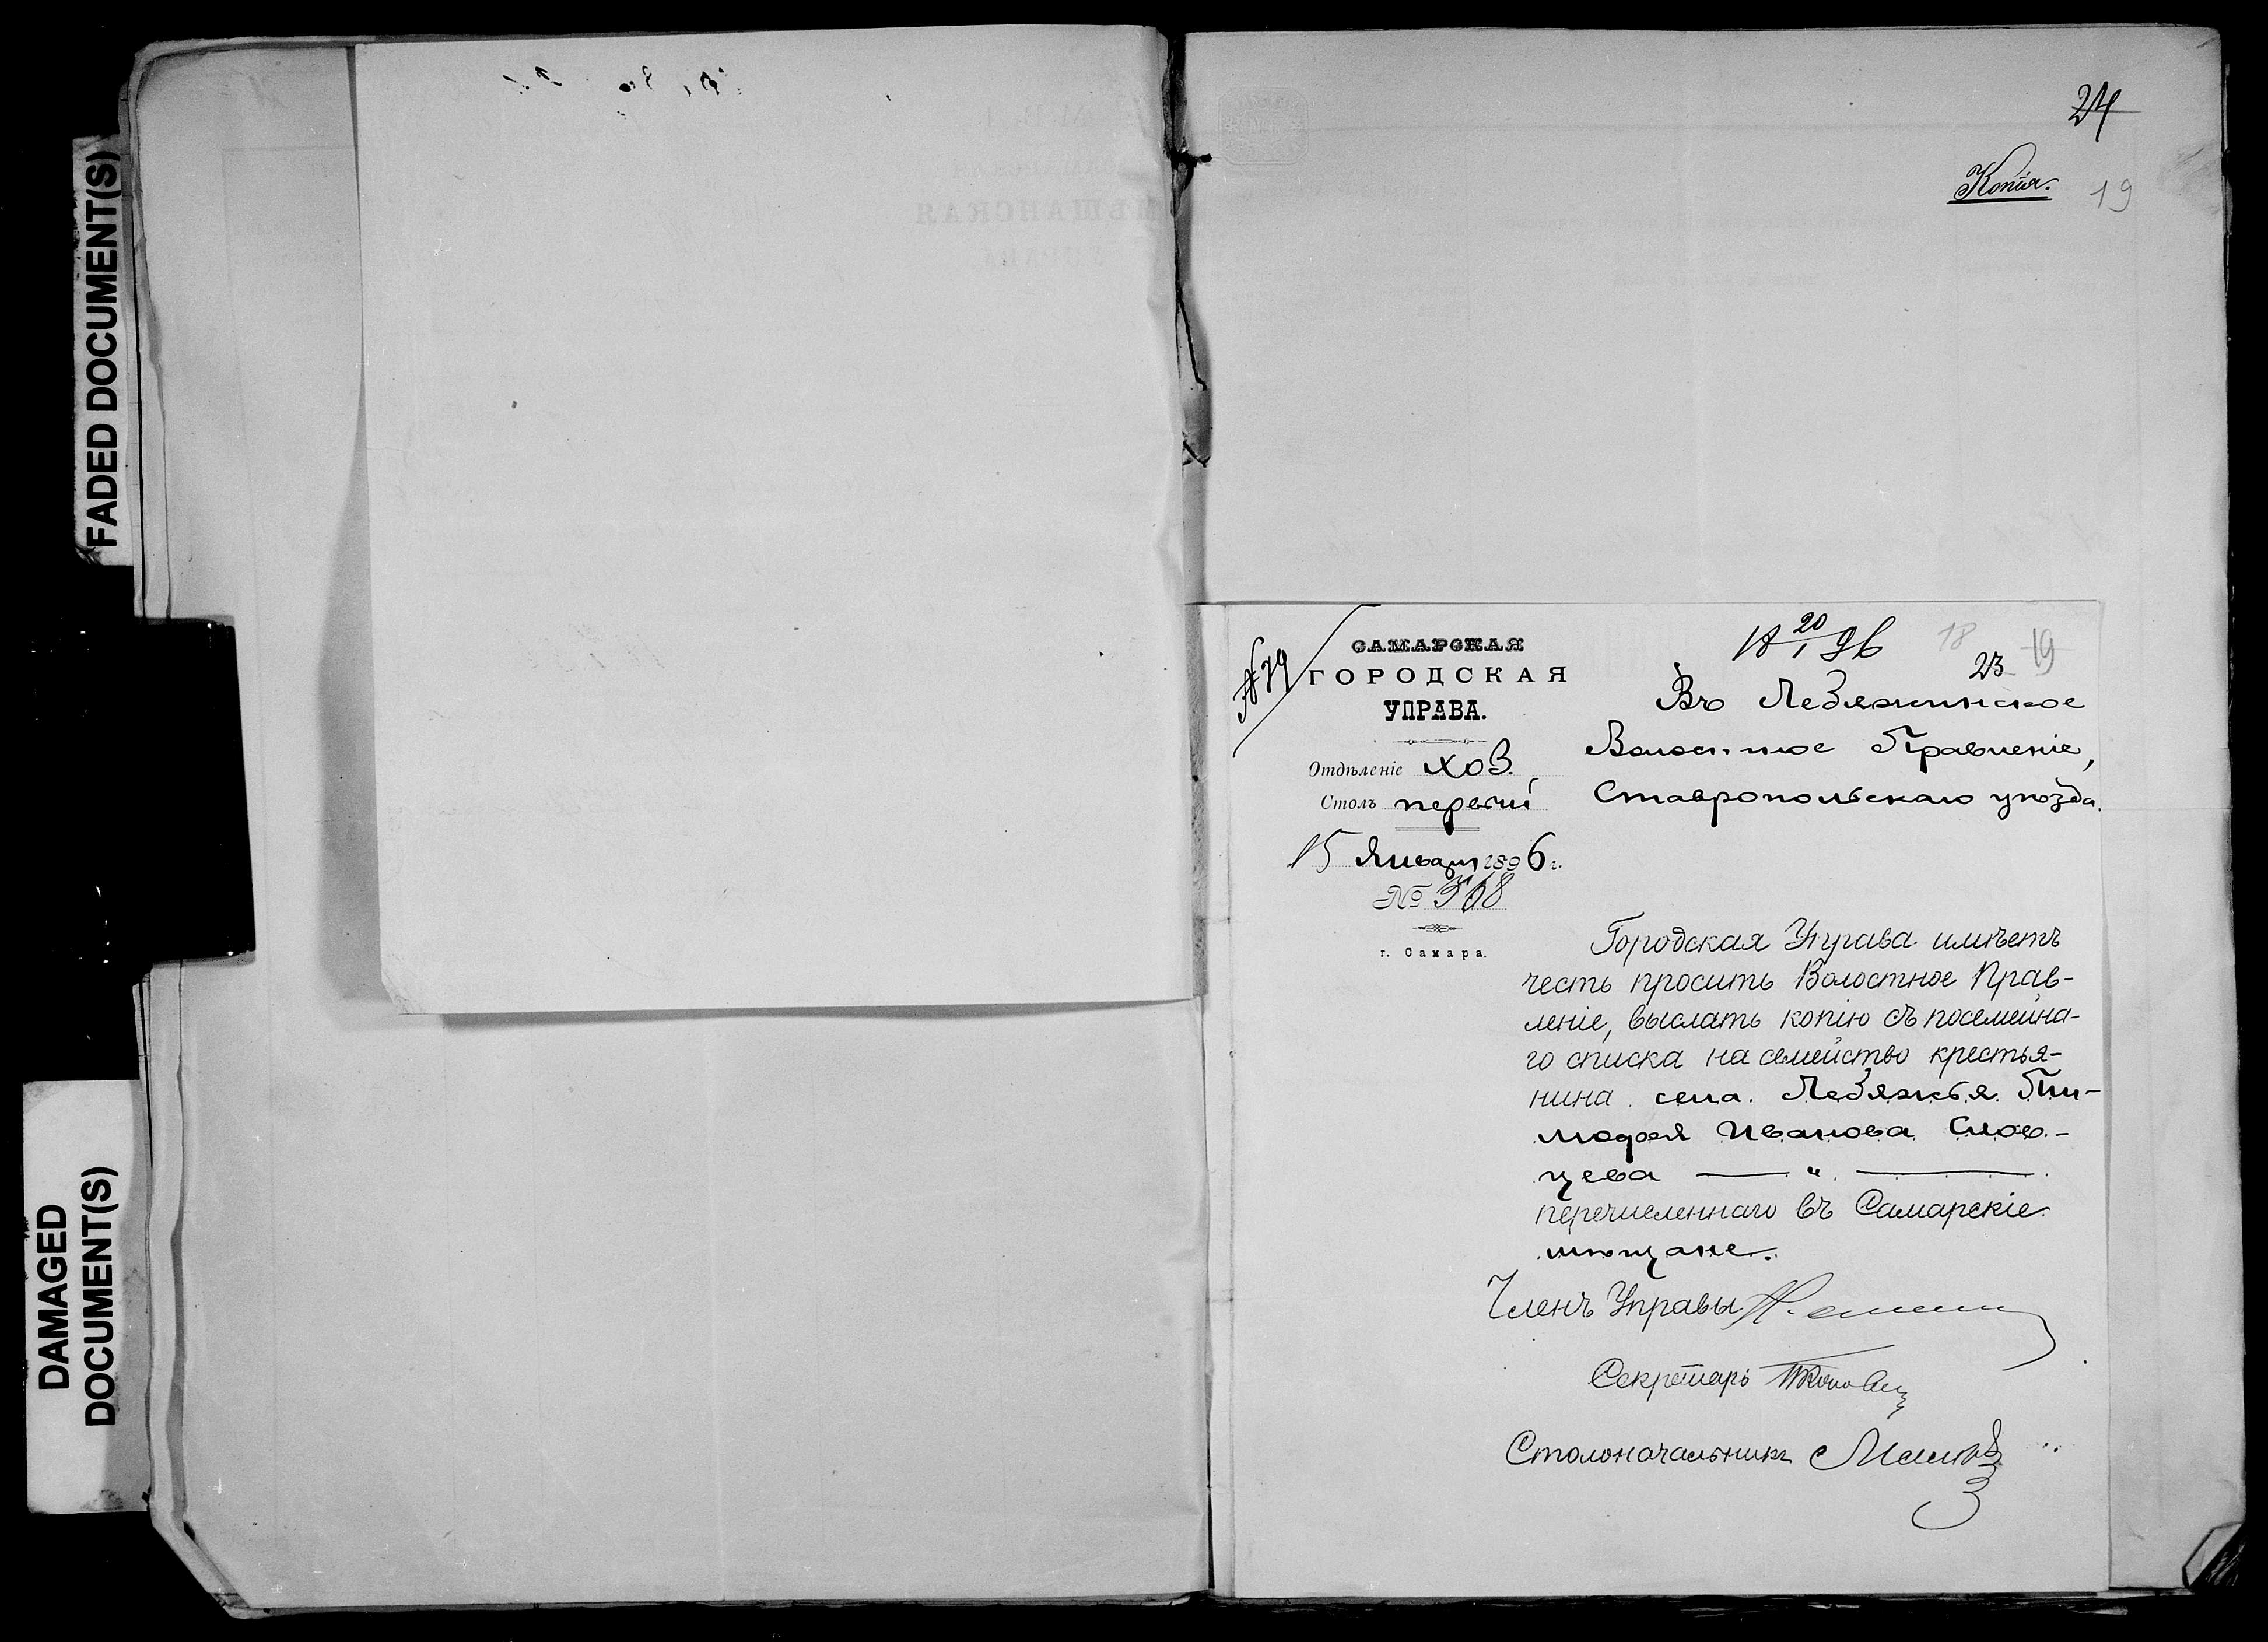 FADED DOCUMENT(S)
DAMAGED
DOCUMENT(S)
24
Копія.
19
САМАРСКАЯ
ГОРОДСКАЯ
УПРАВА.
Отдѣленіе хоз.
Столъ первый
15 Января 1896 г.
№ 368
г. Самара.
№ 79
18 20/1 96
18
23
19
Въ Лебяжинское
Волостное Правленіе,
Ставропольскаго уѣзда.
Городская Управа имѣетъ
честь просить Волостное Прав-
леніе, выслать копію съ посемейна-
го списка на семейство крестья-
нина села Лебяжья Ти-
мофея Иванова Слов-
цева — " —
перечисленнаго въ Самарскіе
мѣщане.
Членъ Управы
Секретарь
Столоначальникъ